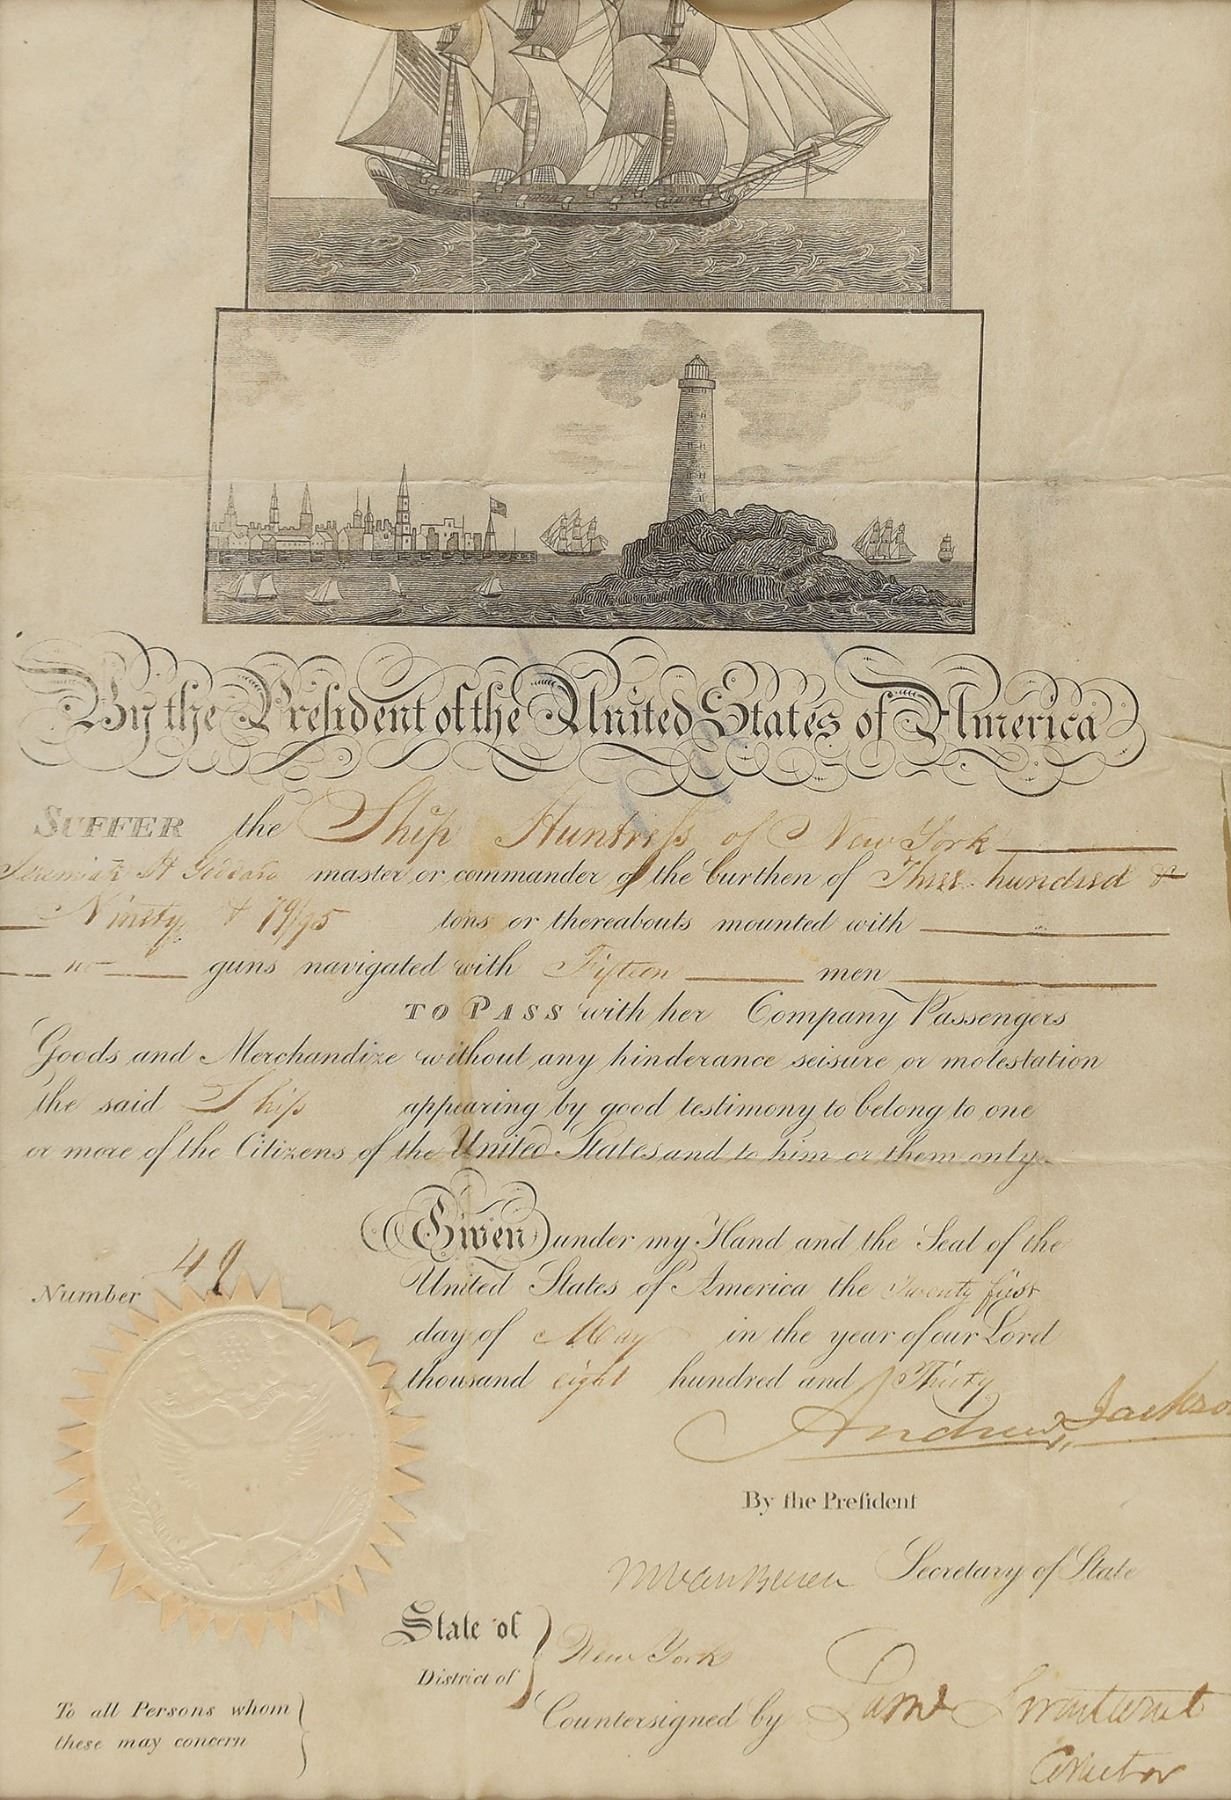 By the President of the United States of America
SUFFER the Ship Huntress of New York
Jeremiah H Goddard master or commander of the burthen of Three hundred &
Ninety & 79/95 tons or thereabouts mounted with
no guns navigated with Fifteen men
TO PASS with her Company Passengers
Goods and Merchandize without any hinderance seisure or molestation
the said Ship appearing by good testimony to belong to one
or more of the Citizens of the United States and to him or them only.
Given under my Hand and the Seal of the
United States of America the Twenty first
day of May in the year of our Lord
thousand eight hundred and Thirty
Number 49
Andrew Jackso
By the President
M Van Buren Secretary of State
State of
District of
New York
Countersigned by Saml Swartwout
Collector
To all Persons whom
these may concern